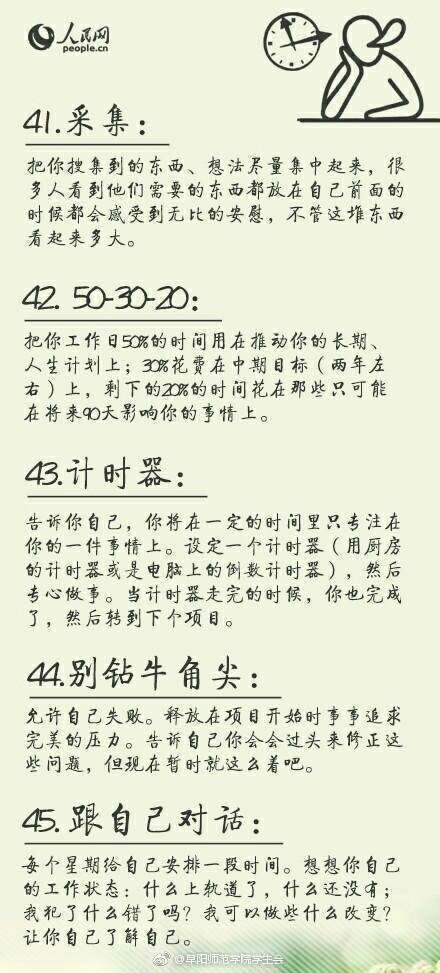 人民网
people.cn
41.采集：
把你搜集到的东西、想法尽量集中起来，很
多人看到他们需要的东西都放在自己前面的
时候都会感受到无比的安慰，不管这堆东西
看起来多大。
42. 50-30-20：
把你工作日50%的时间用在推动你的长期、
人生计划上；30%花费在中期目标（两年左
右）上，剩下的20%的时间花在那些只可能
在将来90天影响你的事情上。
43.计时器：
告诉你自己，你将在一定的时间里只专注在
你的一件事情上。设定一个计时器（用厨房
的计时器或是电脑上的倒数计时器），然后
专心做事。当计时器走完的时候，你也完成
了，然后转到下个项目。
44.别钻牛角尖：
允许自己失败。释放在项目开始时事事追求
完美的压力。告诉自己你会会过头来修正这
些问题，但现在暂时就这么着吧。
45.跟自己对话：
每个星期给自己安排一段时间。想想你自己
的工作状态：什么上轨道了，什么还没有；
我犯了什么错了吗？我可以做些什么改变？
让你自己了解自己。
@阜阳师范学院学生会